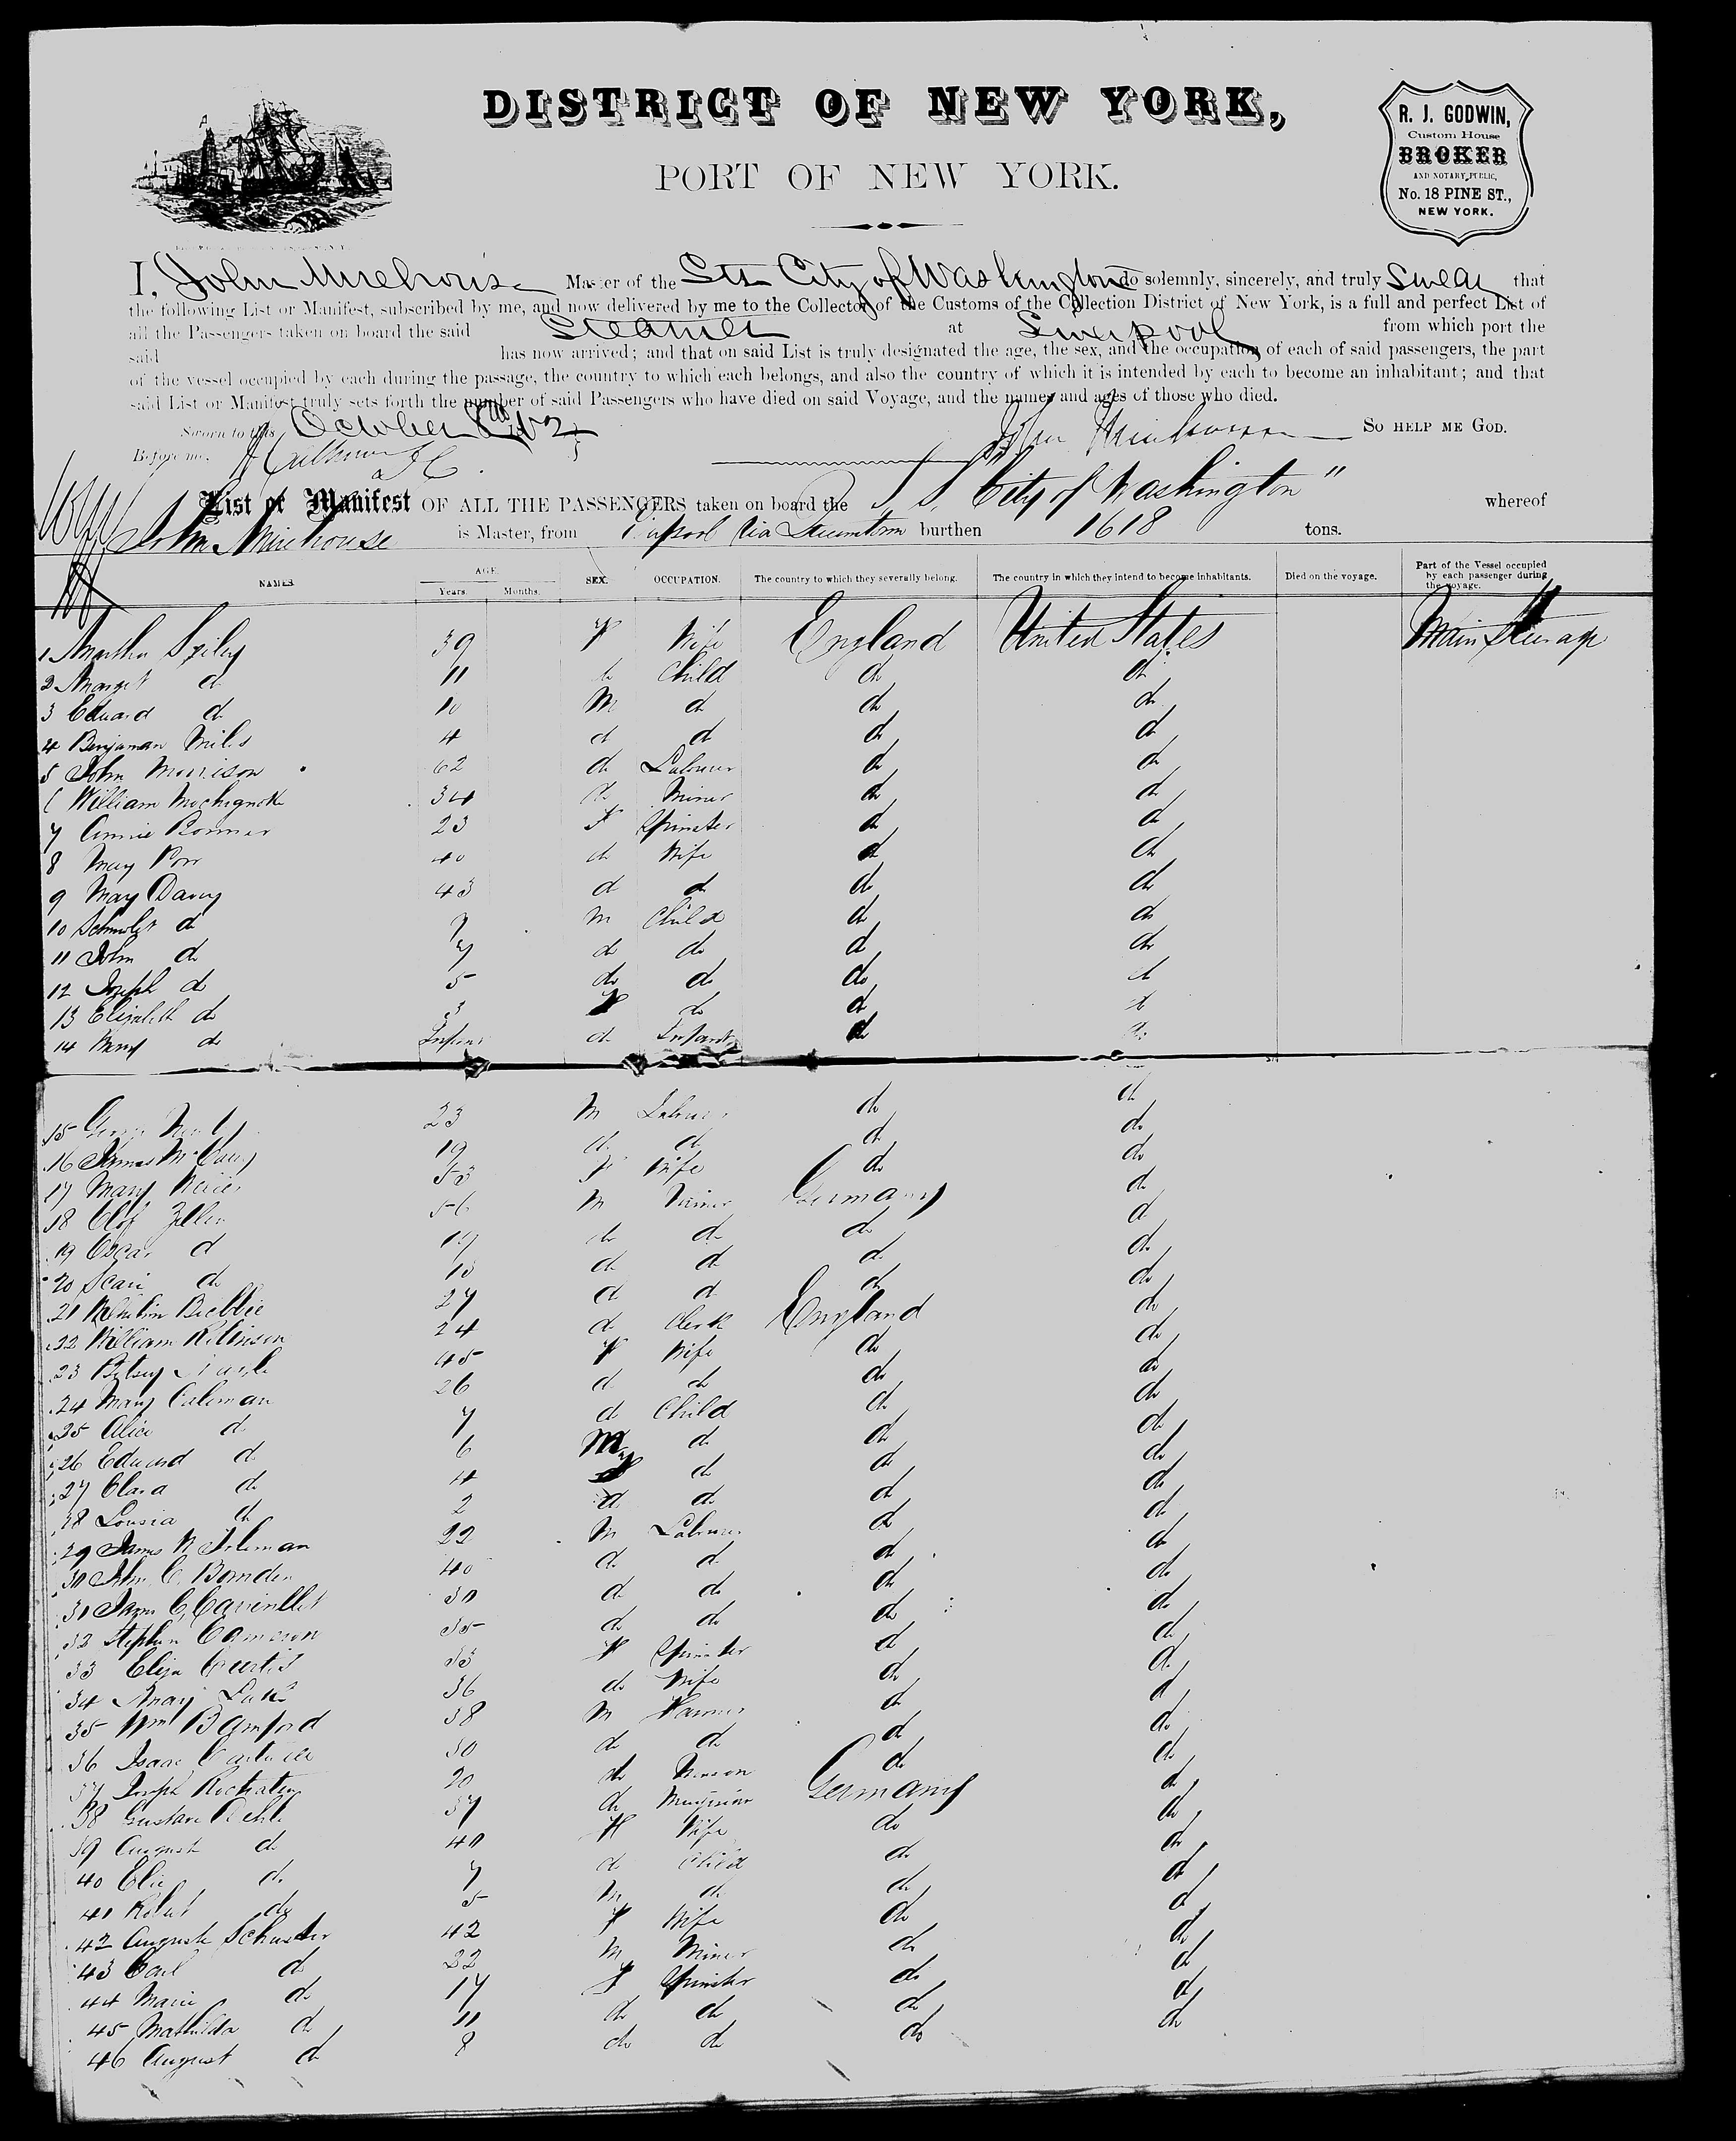 DISTRICT OF NEW YORK,
PORT OF NEW YORK.
R. J. GODWIN,
Custom House
BROKER
AND NOTARY PUBLIC,
No. 18 PINE ST.,
NEW YORK.
I, John Mirehouse Master of the Str City of Washington do solemnly, sincerely, and truly Swear that
the following List or Manifest, subscribed by me, and now delivered by me to the Collector of the Customs of the Collection District of New York, is a full and perfect List of
all the Passengers taken on board the said Steamer at Liverpool from which port the
said has now arrived; and that on said List is truly designated the age, the sex, and the occupation of each of said passengers, the part
of the vessel occupied by each during the passage, the country to which each belongs, and also the country of which it is intended by each to become an inhabitant; and that
said List or Manifest truly sets forth the number of said Passengers who have died on said Voyage, and the names and ages of those who died.
Sworn to this October John Mirehouse SO HELP ME GOD.
Before me.
List or Manifest OF ALL THE PASSENGERS taken on board the S. S. "City of Washington" whereof
John Mirehouse is Master, from Lpool via Queenstown burthen 1618 tons.
NAMES. AGE. Years. Months. SEX. OCCUPATION. The country to which they severally belong. The country in which they intend to become inhabitants. Died on the voyage. Part of the Vessel occupied by each passenger during the voyage.
1 Martha 39 F Wife England United States Main Steerage
2 Margt do 11 do Child do do
3 Edward do 10 M do do do
4 Benjaman Miles 4 do do do do
5 John Morrison 62 do Labourer do do
6 William 34 do Miner do do
7 Annie 23 F Spinster do do
8 Mary 40 do Wife do do
9 Mary Davey 43 do do do do
10 do 9 M Child do do
11 John do 7 do do do do
12 Joseph do 5 do do do do
13 Elizabeth do 3 F do do do
14 Mary do Infant do Infant do do
15 23 M Labourer do do
16 James 19 do do do do
17 Mary 53 F Wife do do
18 Olof 56 M Germany do
19 Oscar do 17 do do do do
20 do do do do do
21 27 do do do do
22 William Robinson 24 do Clerk England do
23 Betsy 45 F Wife do do
24 Mary Caleman 26 do do do do
25 Alice do 7 do Child do do
26 Edward do 6 M do do do
27 Clara do 4 F do do do
28 Lousia do 2 do do do do
29 James 22 M Labourer do do
30 John C. 40 do do do do
31 James C. 30 do do do do
32 Stephen Cameron 35 do do do do
33 Eliza Curtis 33 F Spinster do do
34 Mary 36 do Wife do do
35 Wm Bamford 38 M Farmer do do
36 Isaac 30 do do do do
37 Joseph 20 do do do
38 Gustave 37 do Musician Germany do
39 August do 40 F Wife do do
40 do 7 do Child do do
41 Robert do 5 M do do do
42 Auguste Schuster 42 F Wife do do
43 Carl do 22 M Miner do do
44 Marie do 17 F Spinster do do
45 Mathilda do 11 do do do do
46 August do 8 do do do do